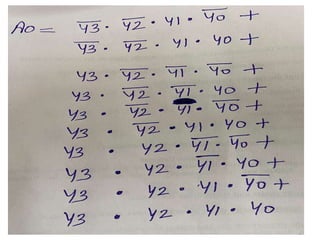 A0 = y̅3̅ · y̅2̅ · y1 · y̅0̅ +
y̅3̅ · y̅2̅ · y1 · y0 +
y3 · y̅2̅ · y̅1̅ · y̅0̅ +
y3 · y̅2̅ · y̅1̅ · y0 +
y3 · y̅2̅ · y1 · y̅0̅ +
y3 · y̅2̅ · y1 · y0 +
y3 · y2 · y̅1̅ · y̅0̅ +
y3 · y2 · y̅1̅ · y0 +
y3 · y2 · y1 · y̅0̅ +
y3 · y2 · y1 · y0